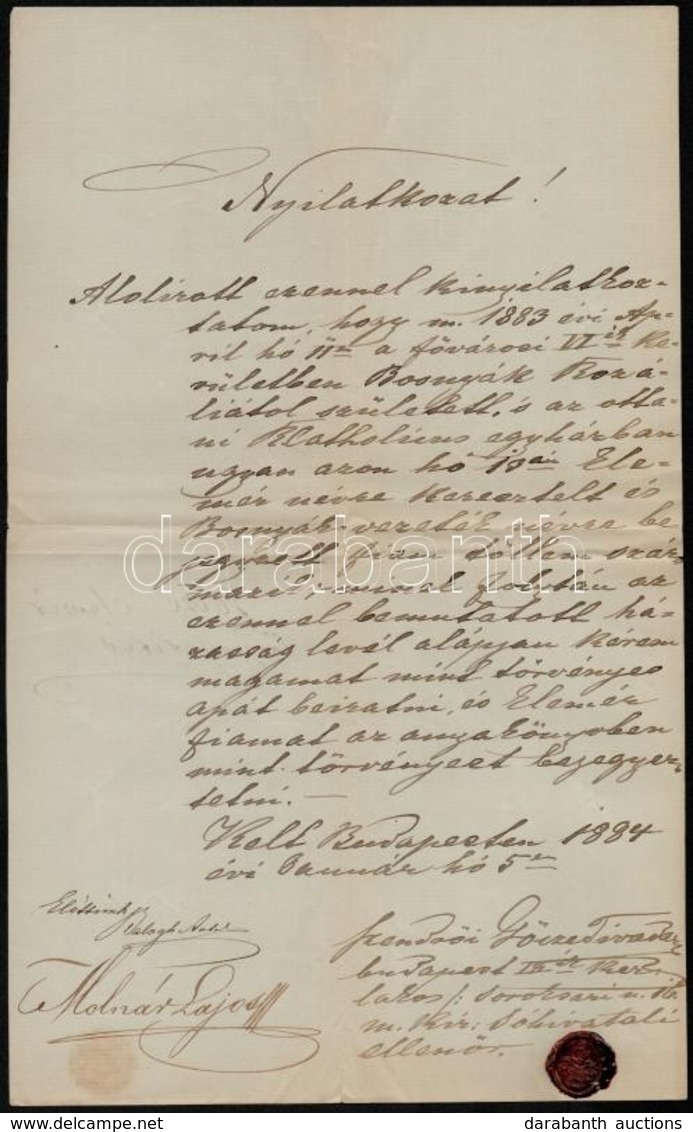 Nyilatkozat!
Alolirott ezennel kinyilatkoz-
tatom, hogy m. 1883 évi Ap-
ril hó 11én a fővárosi VI ik Ke-
rületben Bosnyák Rozá-
liától született, s az otta-
ni R Katholicus egyházban
ugyan azon hó 13án Ele-
mér névre kereztelt és
Bosnyák vezeték névre be
jegyzett fiam töllem szár-
mazik, minél fogván az
ezennel bemutatott há-
zasság levél alápján kérem
magamat mint törvényes
apát beiratni, és Elemér
fiamat az anyakönyvben
mint törvényest bejegyez-
tetni. —
Kelt Budapesten 1884
évi Január hó 5én
Előttünk
Balogh Antal
Molnár Lajos
Szendrői Gőcze Tivadar
budapest IX ik Ker.
lakos /: Soroksari u. 16.
m. Kir: Sóhivatali
ellenőr.
darabanth
darabanth auctions